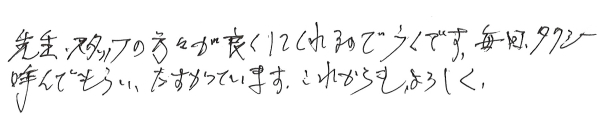 先生、スタッフの方々が良くしてくれるので うくです、毎回、タクシー
呼んでもらい、たすかっています。これからも、よろしく、